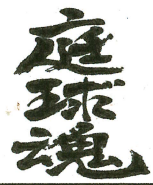 庭球魂